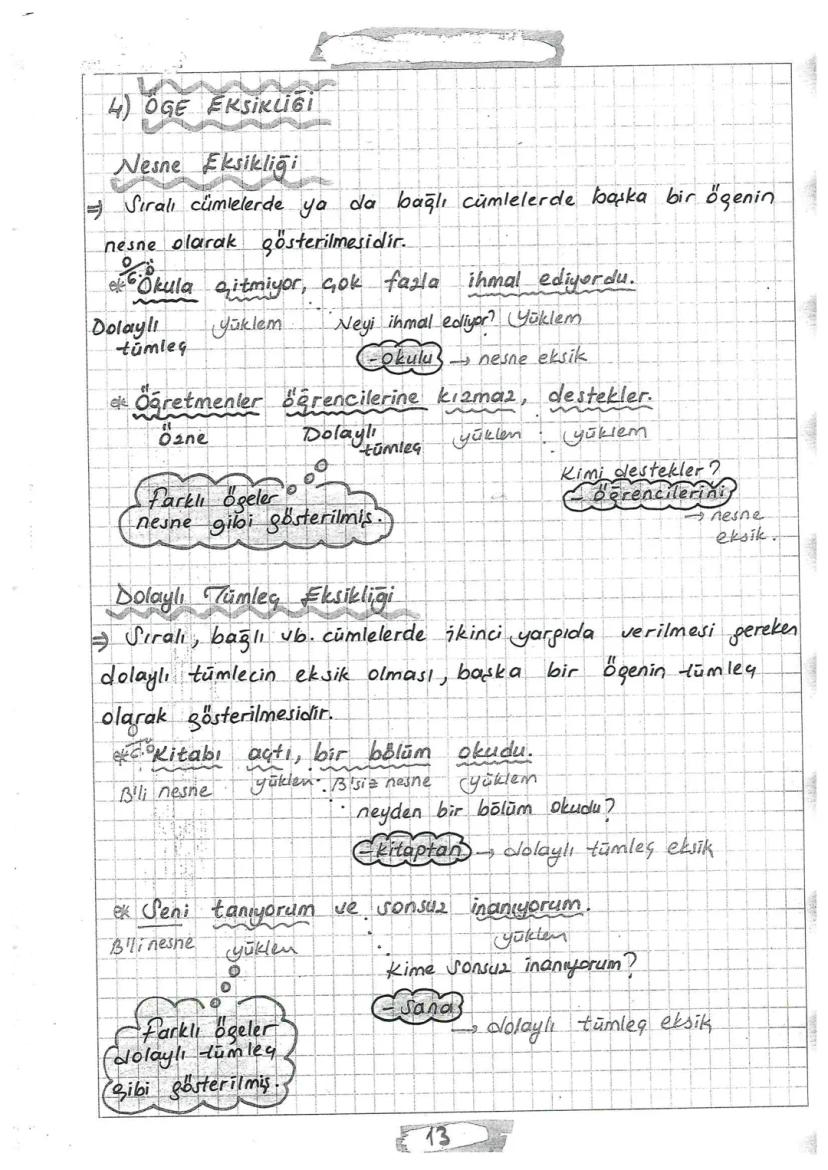 4) ÖGE EKSİKLİĞİ
Nesne Eksikliği
⇒ Sıralı cümlelerde ya da bağlı cümlelerde başka bir ögenin
nesne olarak gösterilmesidir.
G.Ö
ek Okula gitmiyor, çok fazla ihmal ediyordu.
Dolaylı tümleç yüklem Neyi ihmal ediyor? Yüklem
- okulu → nesne eksik
ek Öğretmenler öğrencilerine kızmaz, destekler.
Özne Dolaylı tümleç yüklem yüklem
Kimi destekler?
- öğrencilerini
→ nesne
eksik.
Farklı ögeler
nesne gibi gösterilmiş.
Dolaylı Tümleç Eksikliği
⇒ Sıralı, bağlı vb. cümlelerde ikinci yargıda verilmesi gereken
dolaylı tümlecin eksik olması, başka bir ögenin tümleç
olarak gösterilmesidir.
ek G.Ö Kitabı açtı, bir bölüm okudu.
B'li nesne yüklem B'siz nesne yüklem
neyden bir bölüm okudu?
- kitaptan → dolaylı tümleç eksik
ek Seni tanıyorum ve sonsuz inanıyorum.
B'li nesne yüklem yüklem
Kime sonsuz inanıyorum?
- Sana
→ dolaylı tümleç eksik
Farklı ögeler
dolaylı tümleç
gibi gösterilmiş.
13